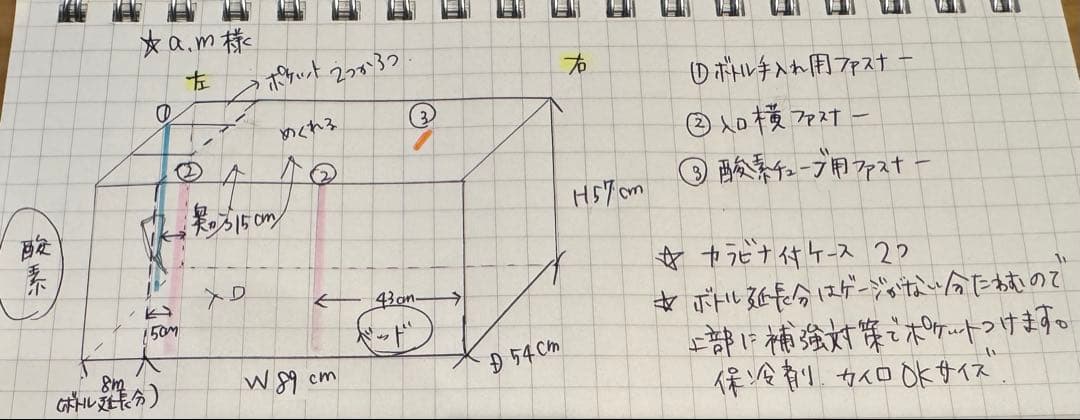 ☆ a.m 様
左
ポケット 2つか3つ
右
①
めくれる
③
②
②
奥から15cm
酸素
入口
50m
43cm
ベッド
8m
(ボトル延長分)
W 89 cm
D 54cm
H57cm
①ボトル手入れ用ファスナー
②入口横ファスナー
③酸素チューブ用ファスナー
☆ カラビナ付ケース 2つ
☆ ボトル延長分はゲージがない分たわむので
上部に補強対策でポケットつけます。
保冷剤、カイロOKサイズ